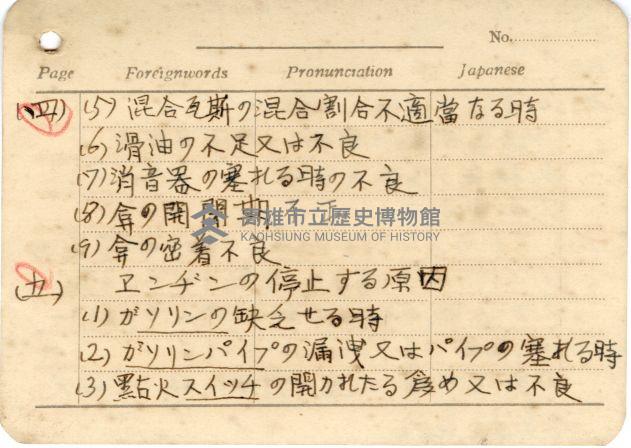 No.
Page Foreignwords Pronunciation Japanese
(四) (5) 混合瓦斯の混合割合不適當なる時
(6) 滑油の不足又は不良
(7) 消音器の塞れる時の不良
(8) 弇の開閉期不正
高雄市立歷史博物館
KAOHSIUNG MUSEUM OF HISTORY
(9) 弇の密着不良
(五) ヱンヂンの停止する原因
(1) ガソリンの缺乏せる時
(2) ガソリンパイプの漏洩又はパイプの塞れる時
(3) 點火スイッチの開かれたる為め又は不良